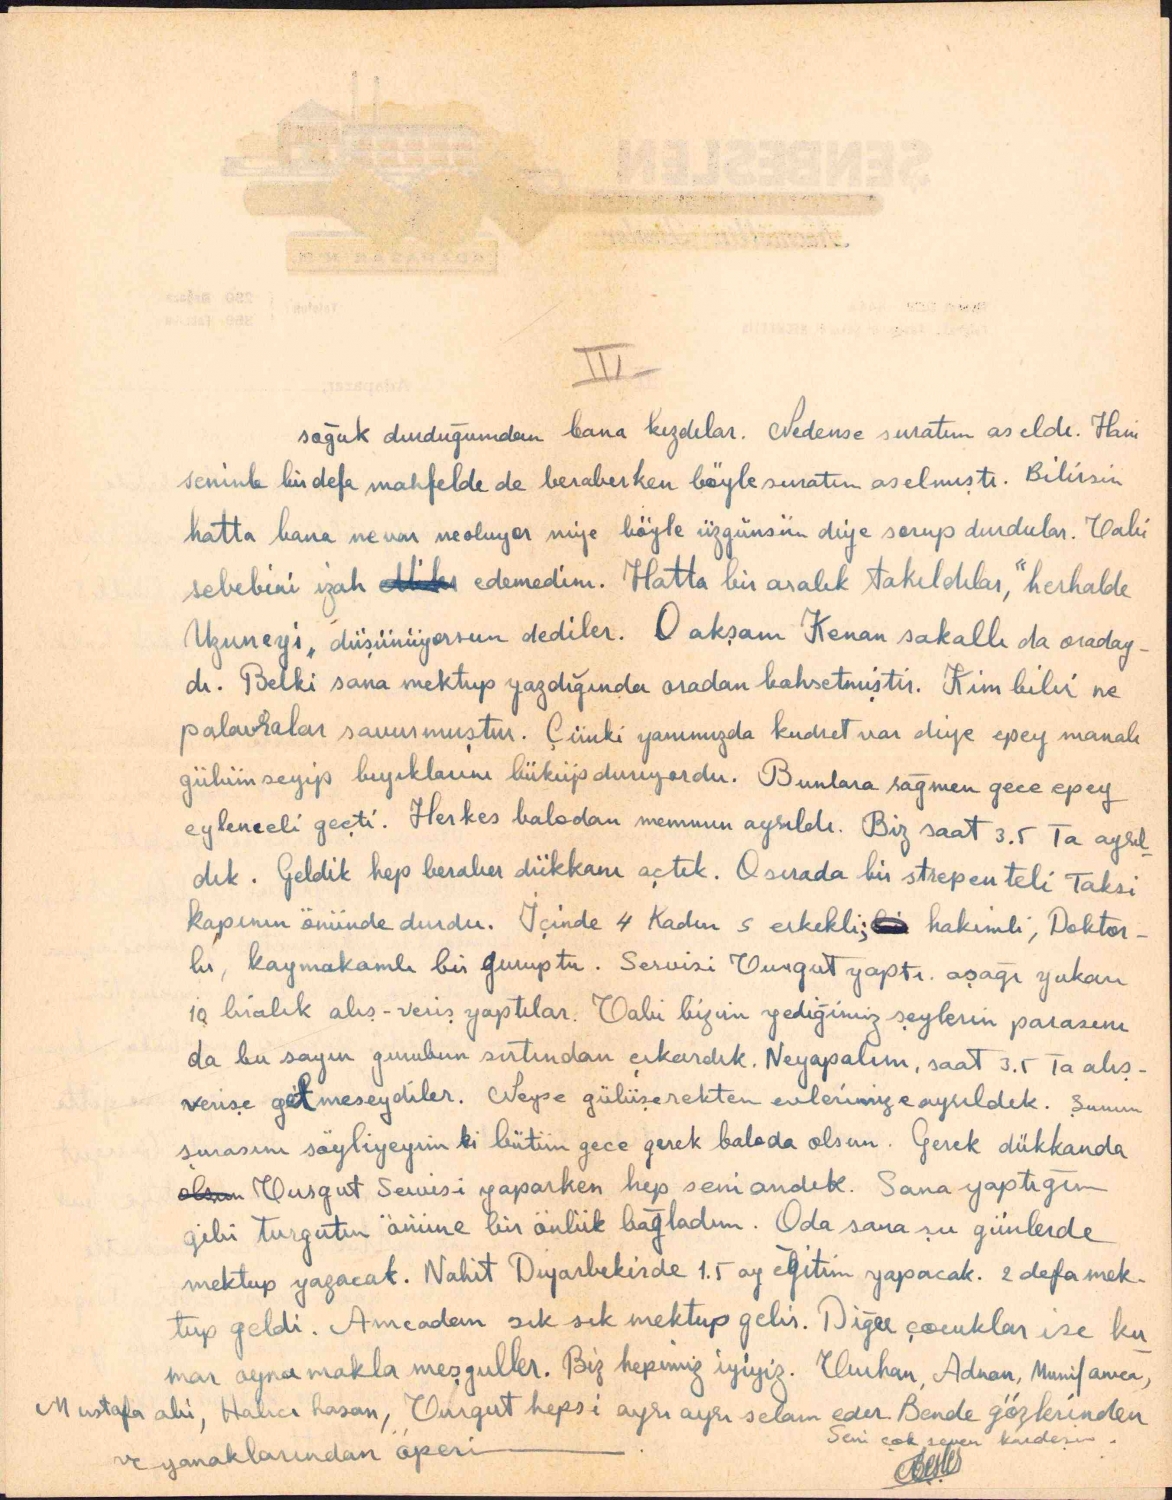 ŞENBESLEN
III-
soğuk durduğumdan bana kızdılar. Nedense suratım asıldı. Hani
seninle birdefa mahfelde de beraberken böyle suratım asılmıştı. Bilirsin
hatta bana nevar neoluyor niye böyle üzgünsün diye sorup durdular. Tabi
sebebini izah edemedim. Hatta bir aralık takıldılar, "herhalde
Uzuneyi" düşünüyorsun dediler. O akşam Kenan sakallı da oraday-
dı. Belki sana mektup yazdığında oradan bahsetmiştir. Kim bilir ne
palavralar savurmuştur. Çünki yanımızda kudret var diye epey manalı
gülümseyip bıyıklarını büküp duruyordu. Bunlara rağmen gece epey
eylenceli geçti. Herkes balodan memnun ayrıldı. Biz saat 3.5 Ta ayrıl-
dık. Geldik hep beraber dükkanı açtık. Osırada bir strepenteli Taksi
kapının önünde durdu. İçinde 4 Kadın 5 erkekli; hakimli, Doktor-
lu, kaymakamlı bir guruptu. Servisi Turgut yaptı. aşağı yukarı
10 liralık alış-veriş yaptılar. Tabi bizim yediğimiz şeylerin parasını
da bu sayın gurubun sırtından çıkardık. Neyapalım, saat 3.5 Ta alış-
verişe gelmeseydiler. Neyse gülüşerekten evlerimize ayrıldık. Şunun
şurasını söyliyeyim ki bütün gece gerek baloda olsun. Gerek dükkanda
olsun Turgut Servisi yaparken hep seni andık. Sana yaptığım
gibi turgutun önüne bir önlük bağladım. Oda sana şu günlerde
mektup yazacak. Nahit Diyarbekirde 1.5 ay eğitim yapacak. 2 defa mek-
tup geldi. Amcadan sık sık mektup gelir. Diğer çocuklar ise ku-
mar oynamakla meşguller. Biz hepimiz iyiyiz. Turhan, Adnan, Munif amca,
Mustafa abi, Halıcı hasan, Turgut hepsi ayrı ayrı selam eder. Bende gözlerinden
ve yanaklarından öperi
Seni çok seven kardeşin.